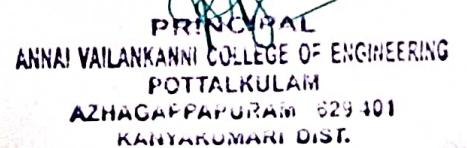 PRINCIPAL
ANNAI VAILANKANNI COLLEGE OF ENGINEERING
POTTALKULAM
AZHAGAPPAPURAM 629 401
KANYAKUMARI DIST.